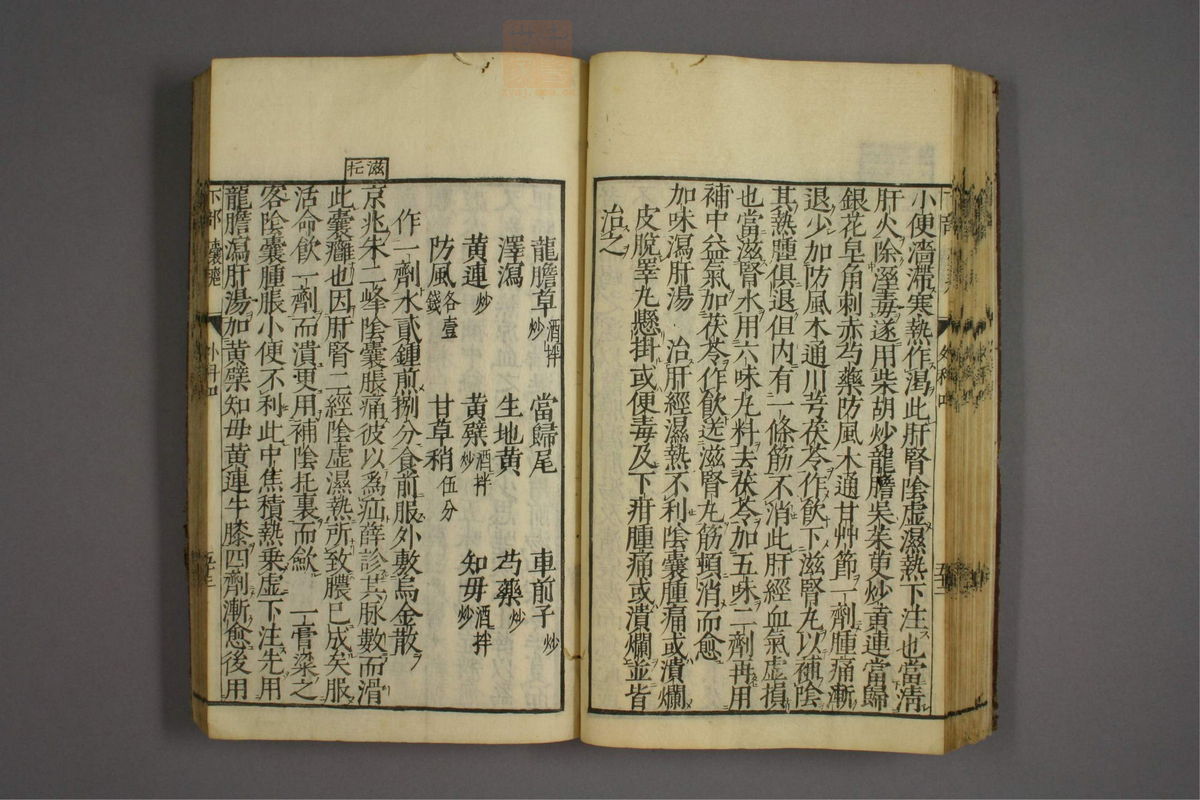 小便濇滯寒熱作渴此肝腎陰虛濕熱下注也當淸
肝火除溼毒遂用柴胡炒龍膽吳茱萸炒黃連當歸
銀花皂角刺赤芍藥防風木通甘艸節一劑腫痛漸
退少加防風木通川芎茯苓作飮下滋腎丸以補陰
其熱腫俱退但内有一條筋不消此肝經血氣虛損
也當滋腎水用六味丸料去茯苓加五味二劑再用
補中益氣加茯苓作飮送滋腎丸筋頓消而愈
加味瀉肝湯 治肝經濕熱不利陰囊腫痛或潰爛
皮脫睪丸懸掛或便毒及下疳腫痛或潰爛並皆
治之
龍膽草酒拌炒 當歸尾 車前子炒
澤瀉 生地黃 芍藥炒
黃連炒 黃蘗酒拌炒 知毋酒拌炒
防風各壹錢 甘草稍伍分
作一劑水貳鍾煎捌分食前服外敷烏金散
滋
京兆朱二峰陰囊脹痛彼以爲疝薛診其脉數而滑
此囊癰也因肝腎二經陰虛濕熱所致膿已成矣服
活命飮一劑而潰更用補陰托裏而歛 一膏粱之
客陰囊腫脹小便不利此中焦積熱乗虛下注先用
龍膽瀉肝湯加黃蘗知毋黃連牛膝四劑漸愈後用
下部